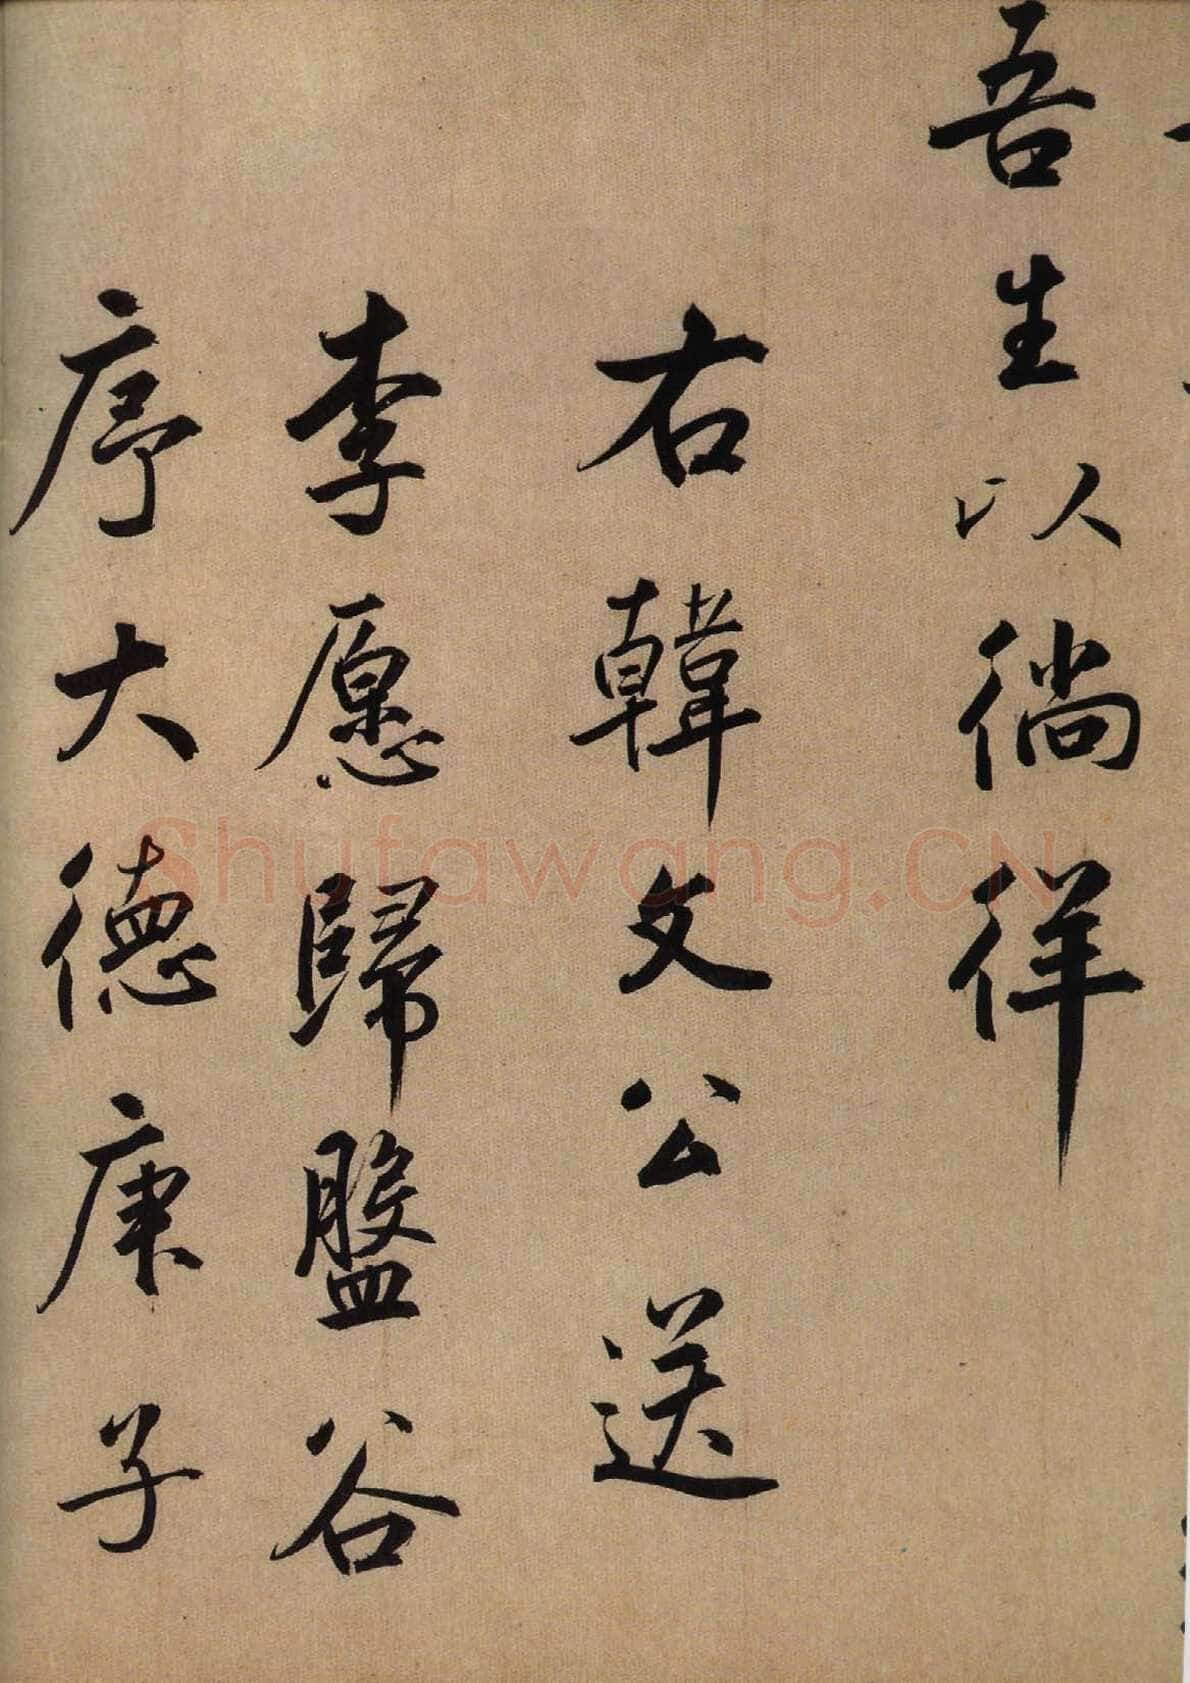 吾生以徜徉
右韓文公送
李愿歸盤谷
序大德庚子
Shufawang.CN